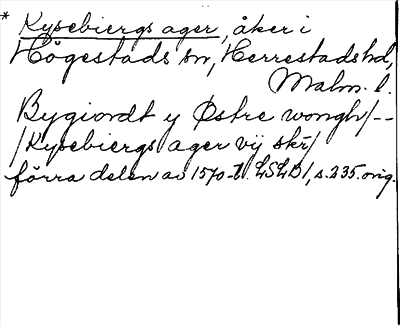 * Kysebiergs ager, åker i
Högestads sn, Herrestads hd,
Malm. l.
Bygiordt y Østre wongh/--
/Kysebiergs ager vij skr/
förra delen av 1570-t. LSLB/, s. 235. orig.